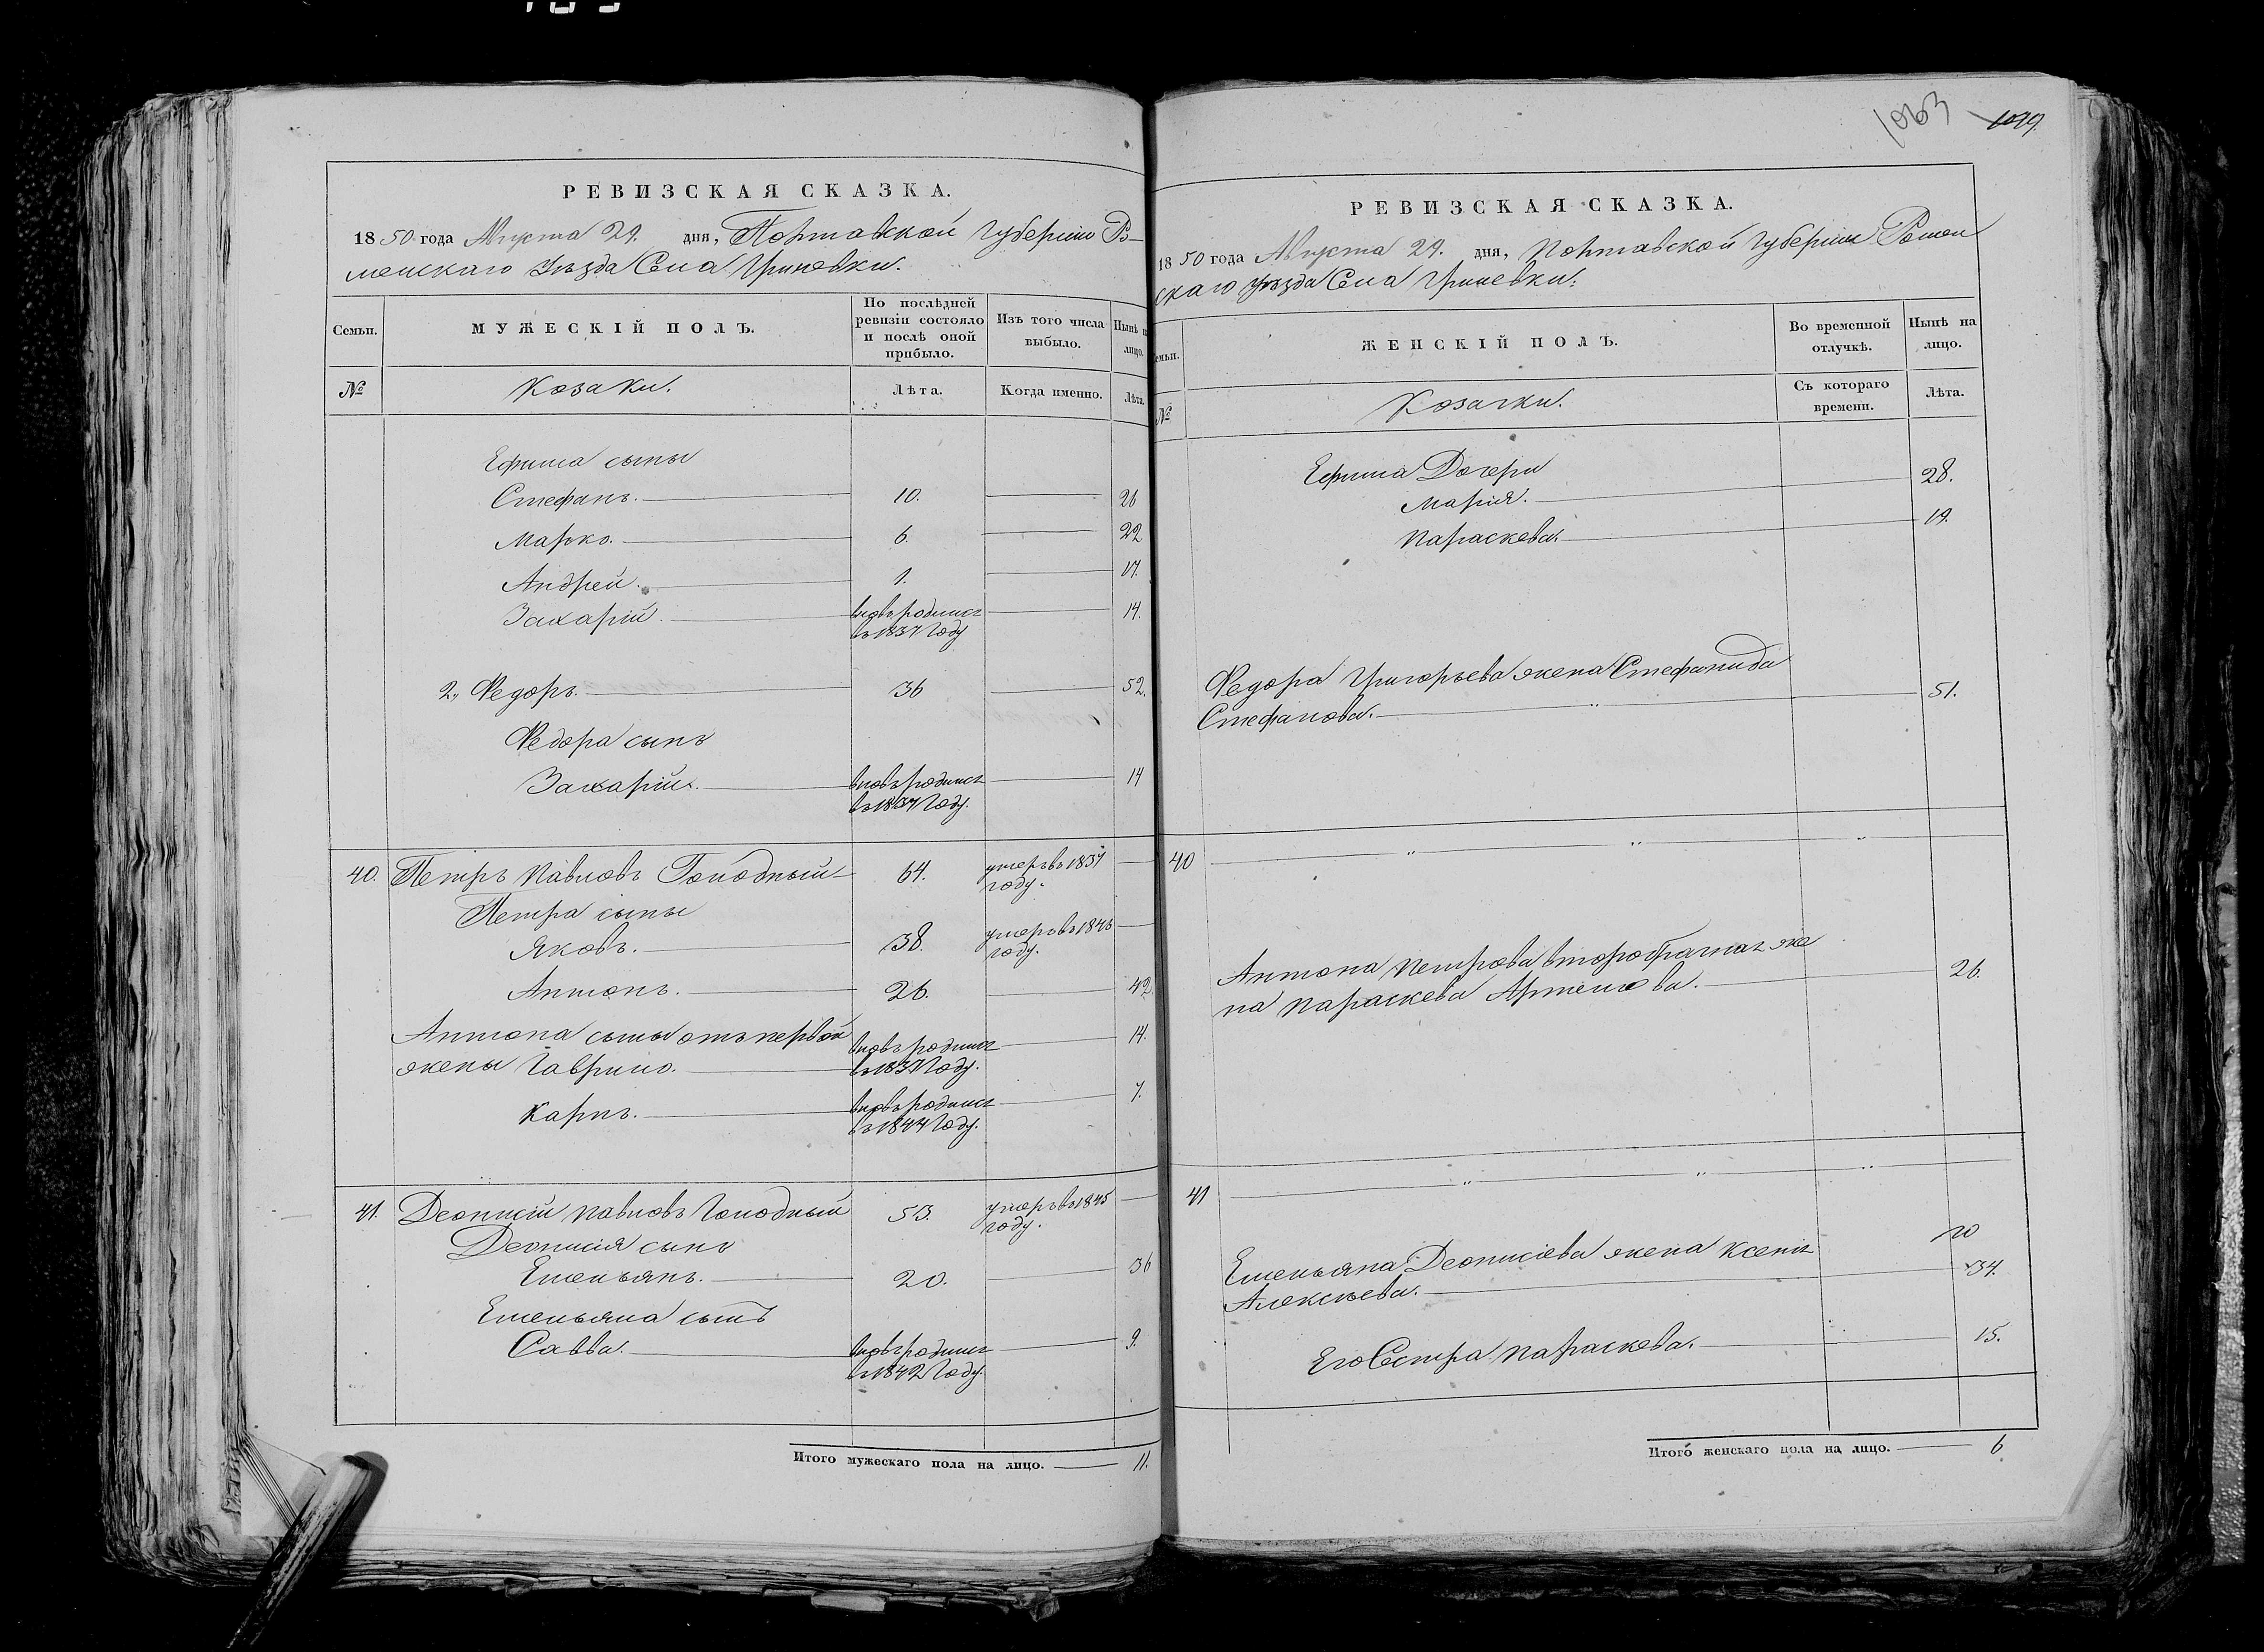 РЕВИЗСКАЯ СКАЗКА.
1850 года Августа 29. дня, Полтавской Губерніи Ро-
менскаго Уѣзда Села Гриневки.
Семьи.
МУЖЕСКІЙ ПОЛЪ.
По послѣдней ревизіи состояло и послѣ оной прибыло.
Изъ того числа выбыло.
Нынѣ на лицо.
№
Козаки.
Лѣта.
Когда именно.
Лѣта.
Ефима сыны
Стефанъ. 10. 26
Марко. 6. 22
Андрей. 1. 17.
Захарій. вновь родился 14.
въ 1837 Году
2,, Федоръ. 36 52.
Федора сынъ
Захарій. вновь родился 14
въ 1837 Году.
40. Петръ Павловъ Голодный 64. умеръ въ 1837
году.
Петра сыны
Яковъ. 38. умеръ въ 1843
году.
Антонъ. 26. 42.
Антона сыны отъ первой вновь родился 14.
жены Гаврило. въ 1837 Году.
Карпъ. вновь родился 7.
въ 1844 Году.
41. Деонисій Павловъ Голодный 53. умеръ въ 1845
году.
Деонисія сынъ
Емельянъ. 20. 36
Емельяна сынъ
Савва. вновь родился 9.
въ 1842 Году.
Итого мужескаго пола на лицо. 11.
1063 1099
РЕВИЗСКАЯ СКАЗКА.
1850 года Августа 29. дня, Полтавской Губерніи Ромен
скаго Уѣзда Села Гриневки.
Семьи.
ЖЕНСКІЙ ПОЛЪ.
Во временной отлучкѣ.
Нынѣ на лицо.
№
Козачки.
Съ котораго времени.
Лѣта.
Ефима Дочери
Марія. 28.
Параскева. 19.
Федора Григорьева жена Стефанида
Стефанова. 51.
40
Антона Петрова второбрачная же
на Параскева Артемова. 26.
41
Емельяна Деонисіева жена Ксенія
Алексѣева. 34.
Его Сестра Параскева. 15.
Итого женскаго пола на лицо. 6